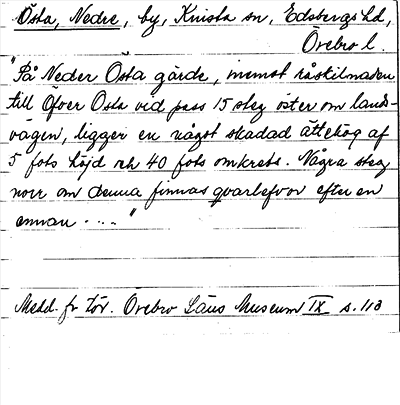 Östa, Nedre, by, Knista sn, Edsbergs hd,
Örebro l.
"På Neder Östa gärde, invid råskilnaden
till Öfver Östa vid pass 15 steg öster om lands-
vägen, ligger en något skadad ättehög af
5 fots höjd och 40 fots omkrets. Några steg
norr om denna finnas qvarlefvor efter en
annan . . . . "
Medd. fr För. Örebro Läns Museum IX s. 113